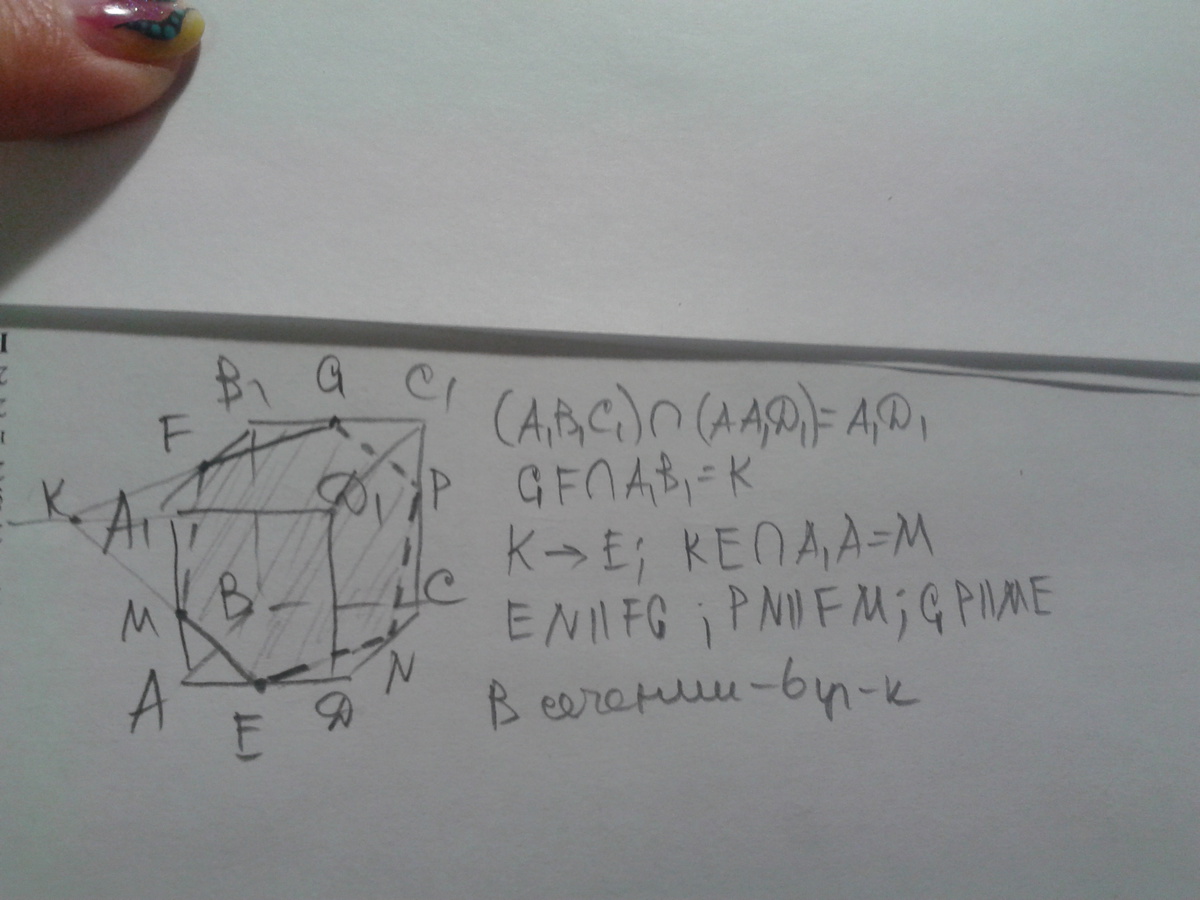 B₁ G C₁
F
K A₁ D₁ P
M B C
A E D N
(A₁B₁C₁)∩(AA₁D₁)=A₁D₁
GF∩A₁B₁=K
K→E; KE∩A₁A=M
EN||FG ; PN||FM; GP||ME
В сечении-6уг-к